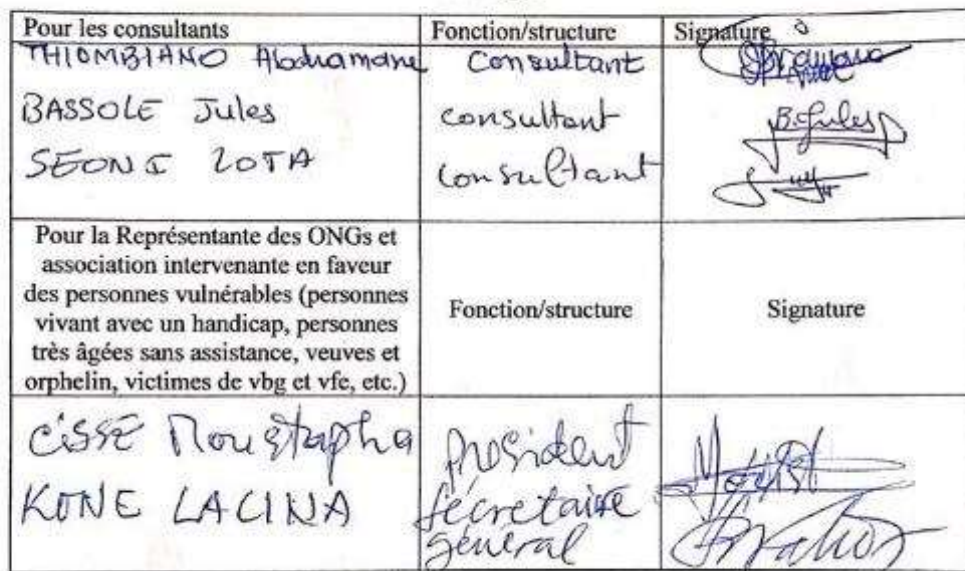 Pour les consultants Fonction/structure Signature
THIOMBIANO Abdramane Consultant
BASSOLE Jules consultant B. Jules
SEONI ZOTA consultant
Pour la Représentante des ONGs et
association intervenante en faveur
des personnes vulnérables (personnes
vivant avec un handicap, personnes
très âgées sans assistance, veuves et
orphelin, victimes de vbg et vfe, etc.)
Fonction/structure
Signature
CISSE Moustapha président
KONE LACINA Sécretaire
général